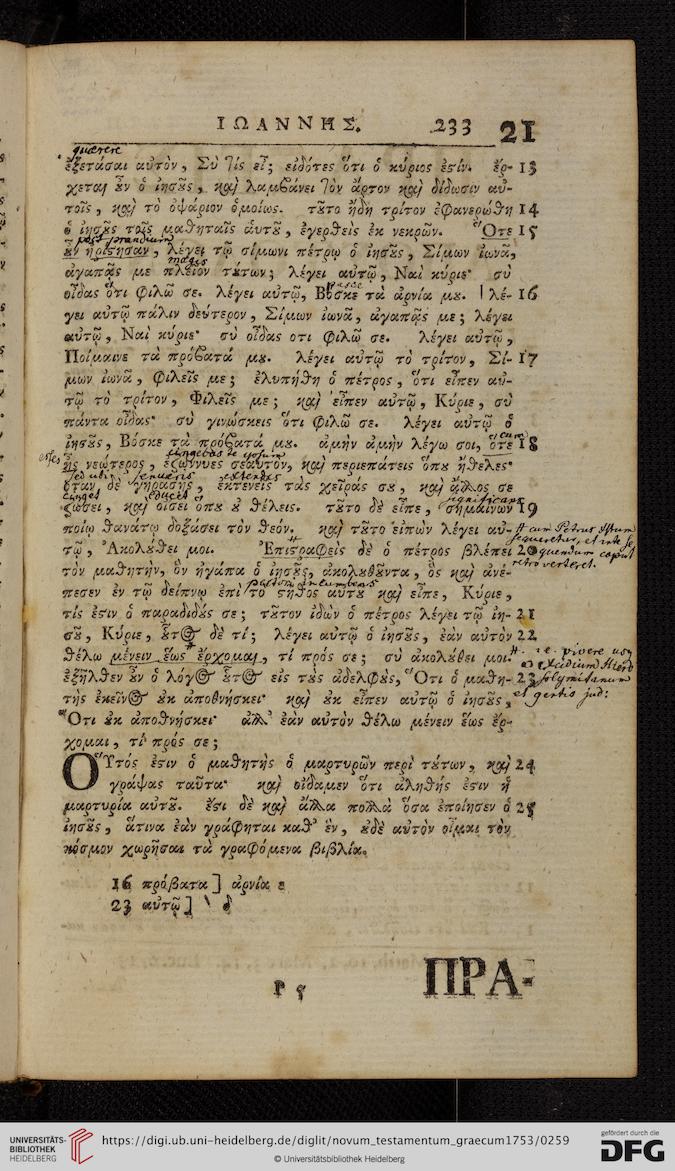 ΙΩΑΝΝΗΣ. 233 21
quærere
ἐξετάσαι αὐτὸν, Σὺ τίς εἶ; εἰδότες ὅτι ὁ κύριός ἐστιν. ἔρ- 13
χεται οὖν ὁ ἰησοῦς, καὶ λαμβάνει τὸν ἄρτον καὶ δίδωσιν αὐ-
τοῖς, καὶ τὸ ὀψάριον ὁμοίως. τοῦτο ἤδη τρίτον ἐφανερώθη 14
ὁ ἰησοῦς τοῖς μαθηταῖς αὑτοῦ, ἐγερθεὶς ἐκ νεκρῶν. Ὅτε 15
post prandium
οὖν ἠρίστησαν, λέγει τῷ σίμωνι πέτρῳ ὁ ἰησοῦς, Σίμων ἰωνᾶ,
magis
ἀγαπᾷς με πλεῖον τούτων; λέγει αὐτῷ, Ναὶ κύριε· σὺ
pasce
οἶδας ὅτι φιλῶ σε. λέγει αὐτῷ, Βόσκε τὰ ἀρνία μου. | λέ- 16
γει αὐτῷ πάλιν δεύτερον, Σίμων ἰωνᾶ, ἀγαπᾷς με; λέγει
αὐτῷ, Ναὶ κύριε· σὺ οἶδας οτι φιλῶ σε. λέγει αὐτῷ,
Ποίμαινε τὰ πρόβατά μου. λέγει αὐτῷ τὸ τρίτον, Σί- 17
μων ἰωνᾶ, φιλεῖς με; ἐλυπήθη ὁ πέτρος, ὅτι εἶπεν αὐ-
τῷ τὸ τρίτον, Φιλεῖς με; καὶ εἶπεν αὐτῷ, Κύριε, σὺ
πάντα οἶδας· σὺ γινώσκεις ὅτι φιλῶ σε. λέγει αὐτῷ ὁ
cum
ἰησοῦς, Βόσκε τὰ πρόβατά μου. ἀμὴν ἀμὴν λέγω σοι, ὅτε 18
esses cingebas te ipsum
ἦς νεώτερος, ἐζώννυες σεαυτὸν, καὶ περιεπάτεις ὅπου ἤθελες·
sed ubi senueris extendes
ὅταν δὲ γηράσῃς, ἐκτενεῖς τὰς χεῖράς σου, καὶ ἄλλος σε
cinget educet significans
ζώσει, καὶ οἴσει ὅπου οὐ θέλεις. τοῦτο δὲ εἶπε, σημαίνων 19
ποίῳ θανάτῳ δοξάσει τὸν θεόν. καὶ τοῦτο εἰπὼν λέγει αὐ- # cum Petrus Istum
τῷ, Ἀκολούθει μοι. Ἐπιστραφεὶς δὲ ὁ πέτρος βλέπει 20 sequeretur, et
τὸν μαθητὴν, ὃν ἠγάπα ὁ ἰησοῦς, ἀκολουθοῦντα, ὃς καὶ ἀνέ- retroverteret.
πεσεν ἐν τῷ δείπνῳ ἐπὶ τὸ στῆθος αὐτοῦ καὶ εἶπε, Κύριε,
τίς ἐστιν ὁ παραδιδούς σε; τοῦτον ἰδὼν ὁ πέτρος λέγει τῷ ἰη- 21
σοῦ, Κύριε, οὗτος δὲ τί; λέγει αὐτῷ ὁ ἰησοῦς, ἐὰν αὐτὸν 22
θέλω μένειν ἕως ἔρχομαι, τί πρός σε; σὺ ἀκολούθει μοι. #. i.e. vivere usq
ἐξῆλθεν οὖν ὁ λόγος οὗτος εἰς τοὺς ἀδελφοὺς, Ὅτι ὁ μαθη- 23
τὴς ἐκεῖνος οὐκ ἀποθνήσκει· καὶ οὐκ εἶπεν αὐτῷ ὁ ἰησοῦς, et gentis jud:
Ὅτι οὐκ ἀποθνήσκει· ἀλλ' ἐὰν αὐτὸν θέλω μένειν ἕως ἔρ-
χομαι, τί πρός σε;
Οὗτός ἐστιν ὁ μαθητὴς ὁ μαρτυρῶν περὶ τούτων, καὶ 24
γράψας ταῦτα· καὶ οἴδαμεν ὅτι ἀληθής ἐστιν ἡ
μαρτυρία αὐτοῦ. ἔστι δὲ καὶ ἄλλα πολλὰ ὅσα ἐποίησεν ὁ 25
ἰησοῦς, ἅτινα ἐὰν γράφηται καθ' ἓν, οὐδὲ αὐτὸν οἶμαι τὸν
κόσμον χωρῆσαι τὰ γραφόμενα βιβλία.
16 πρόβατα] ἀρνία
23 αὐτῷ]
P 5 ΠΡΑ-
UNIVERSITÄTS-
BIBLIOTHEK
HEIDELBERG
https://digi.ub.uni-heidelberg.de/diglit/novum_testamentum_graecum1753/0259
© Universitätsbibliothek Heidelberg
gefördert durch die
DFG